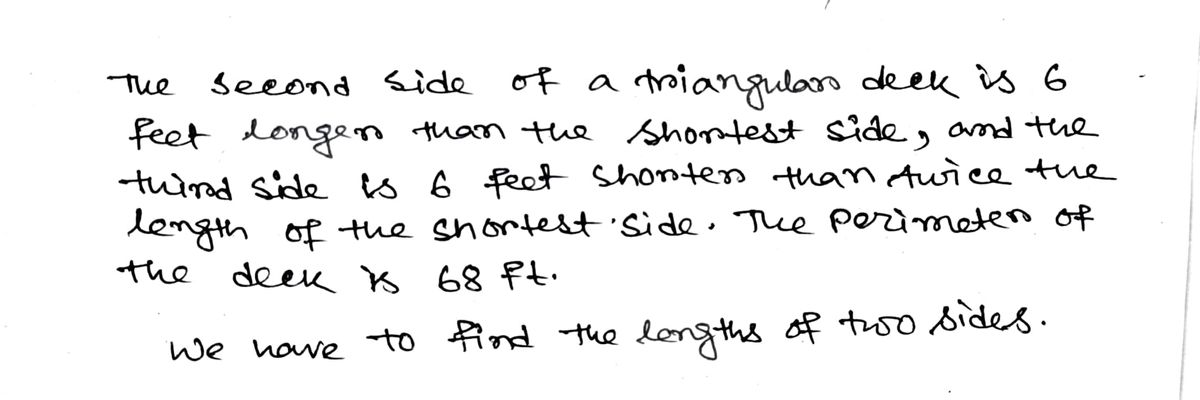 The second side of a triangular deck is 6
feet longer than the shortest side, and the
third side is 6 feet shorter than twice the
length of the shortest side. The perimeter of
the deck is 68 ft.
We have to find the lengths of two sides.